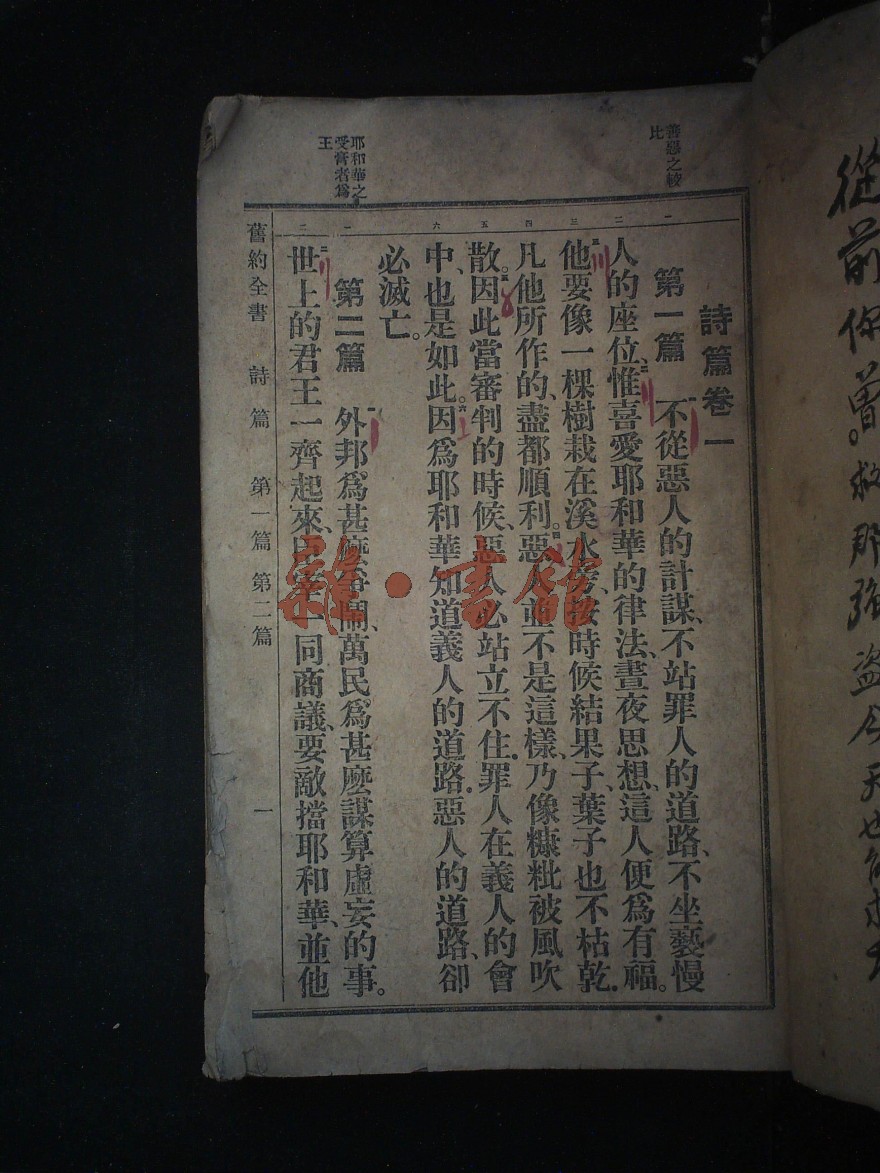 從前你曾。救那强盗今天也
善惡之較
比
耶和華之
受膏者爲
王
一 二 三 四 五 六 一 二
詩篇卷一
第一篇 一不從惡人的計謀、不站罪人的道路、不坐褻慢
人的座位、二惟喜愛耶和華的律法、晝夜思想、這人便爲有福。
三他要像一棵樹栽在溪水旁、按時候結果子、葉子也不枯乾.
凡他所作的、盡都順利。四惡人並不是這樣、乃像糠粃被風吹
散。五因此當審判的時候、惡人必站立不住.罪人在義人的會
中、也是如此。六因爲耶和華知道義人的道路.惡人的道路、卻
必滅亡。
第二篇 一外邦。爲甚麽 鬧、萬民。爲甚麽謀算虛妄的事。
二世上的君王一齊起來、 一同商議、要敵擋耶和華、並他
舊約全書 詩篇 第一篇 第二篇 一
雜·書館